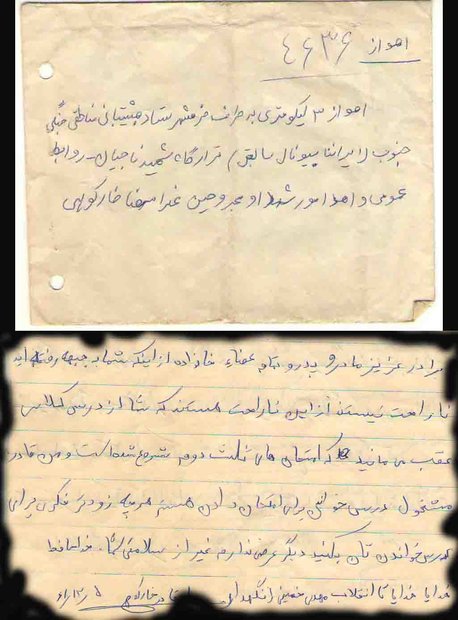 اهواز ٤٦٣۶
اهواز ۳ کیلومتری به طرف خرمشهر ستاد پشتیبانی مناطق جنگی
جنوب (ایرانا سیونال سابق) قرارگاه شهید ناجیان - روابط
عمومی واحد امور شهدا و مجروحین غلامرضا خارکوهی
برادر عزیز مادر و پدر و تمام اعضاء خانواده از اینکه شما به جبهه رفته اید
ناراحت نیستند از این ناراحت هستند که شما از درس کلاس
عقب می مانید که امتحان های ثلث دوم شروع شده است و من قادر
مشغول درس خواندن برای امتحان دادن هستم هر چه زودتر فکری برای
درس خواندن تان بکنید دیگر عرضی ندارم غیر از سلامتی شما. خداحافظ
خدایا خدایا تا انقلاب مهدی خمینی را نگهدار خارکوهی